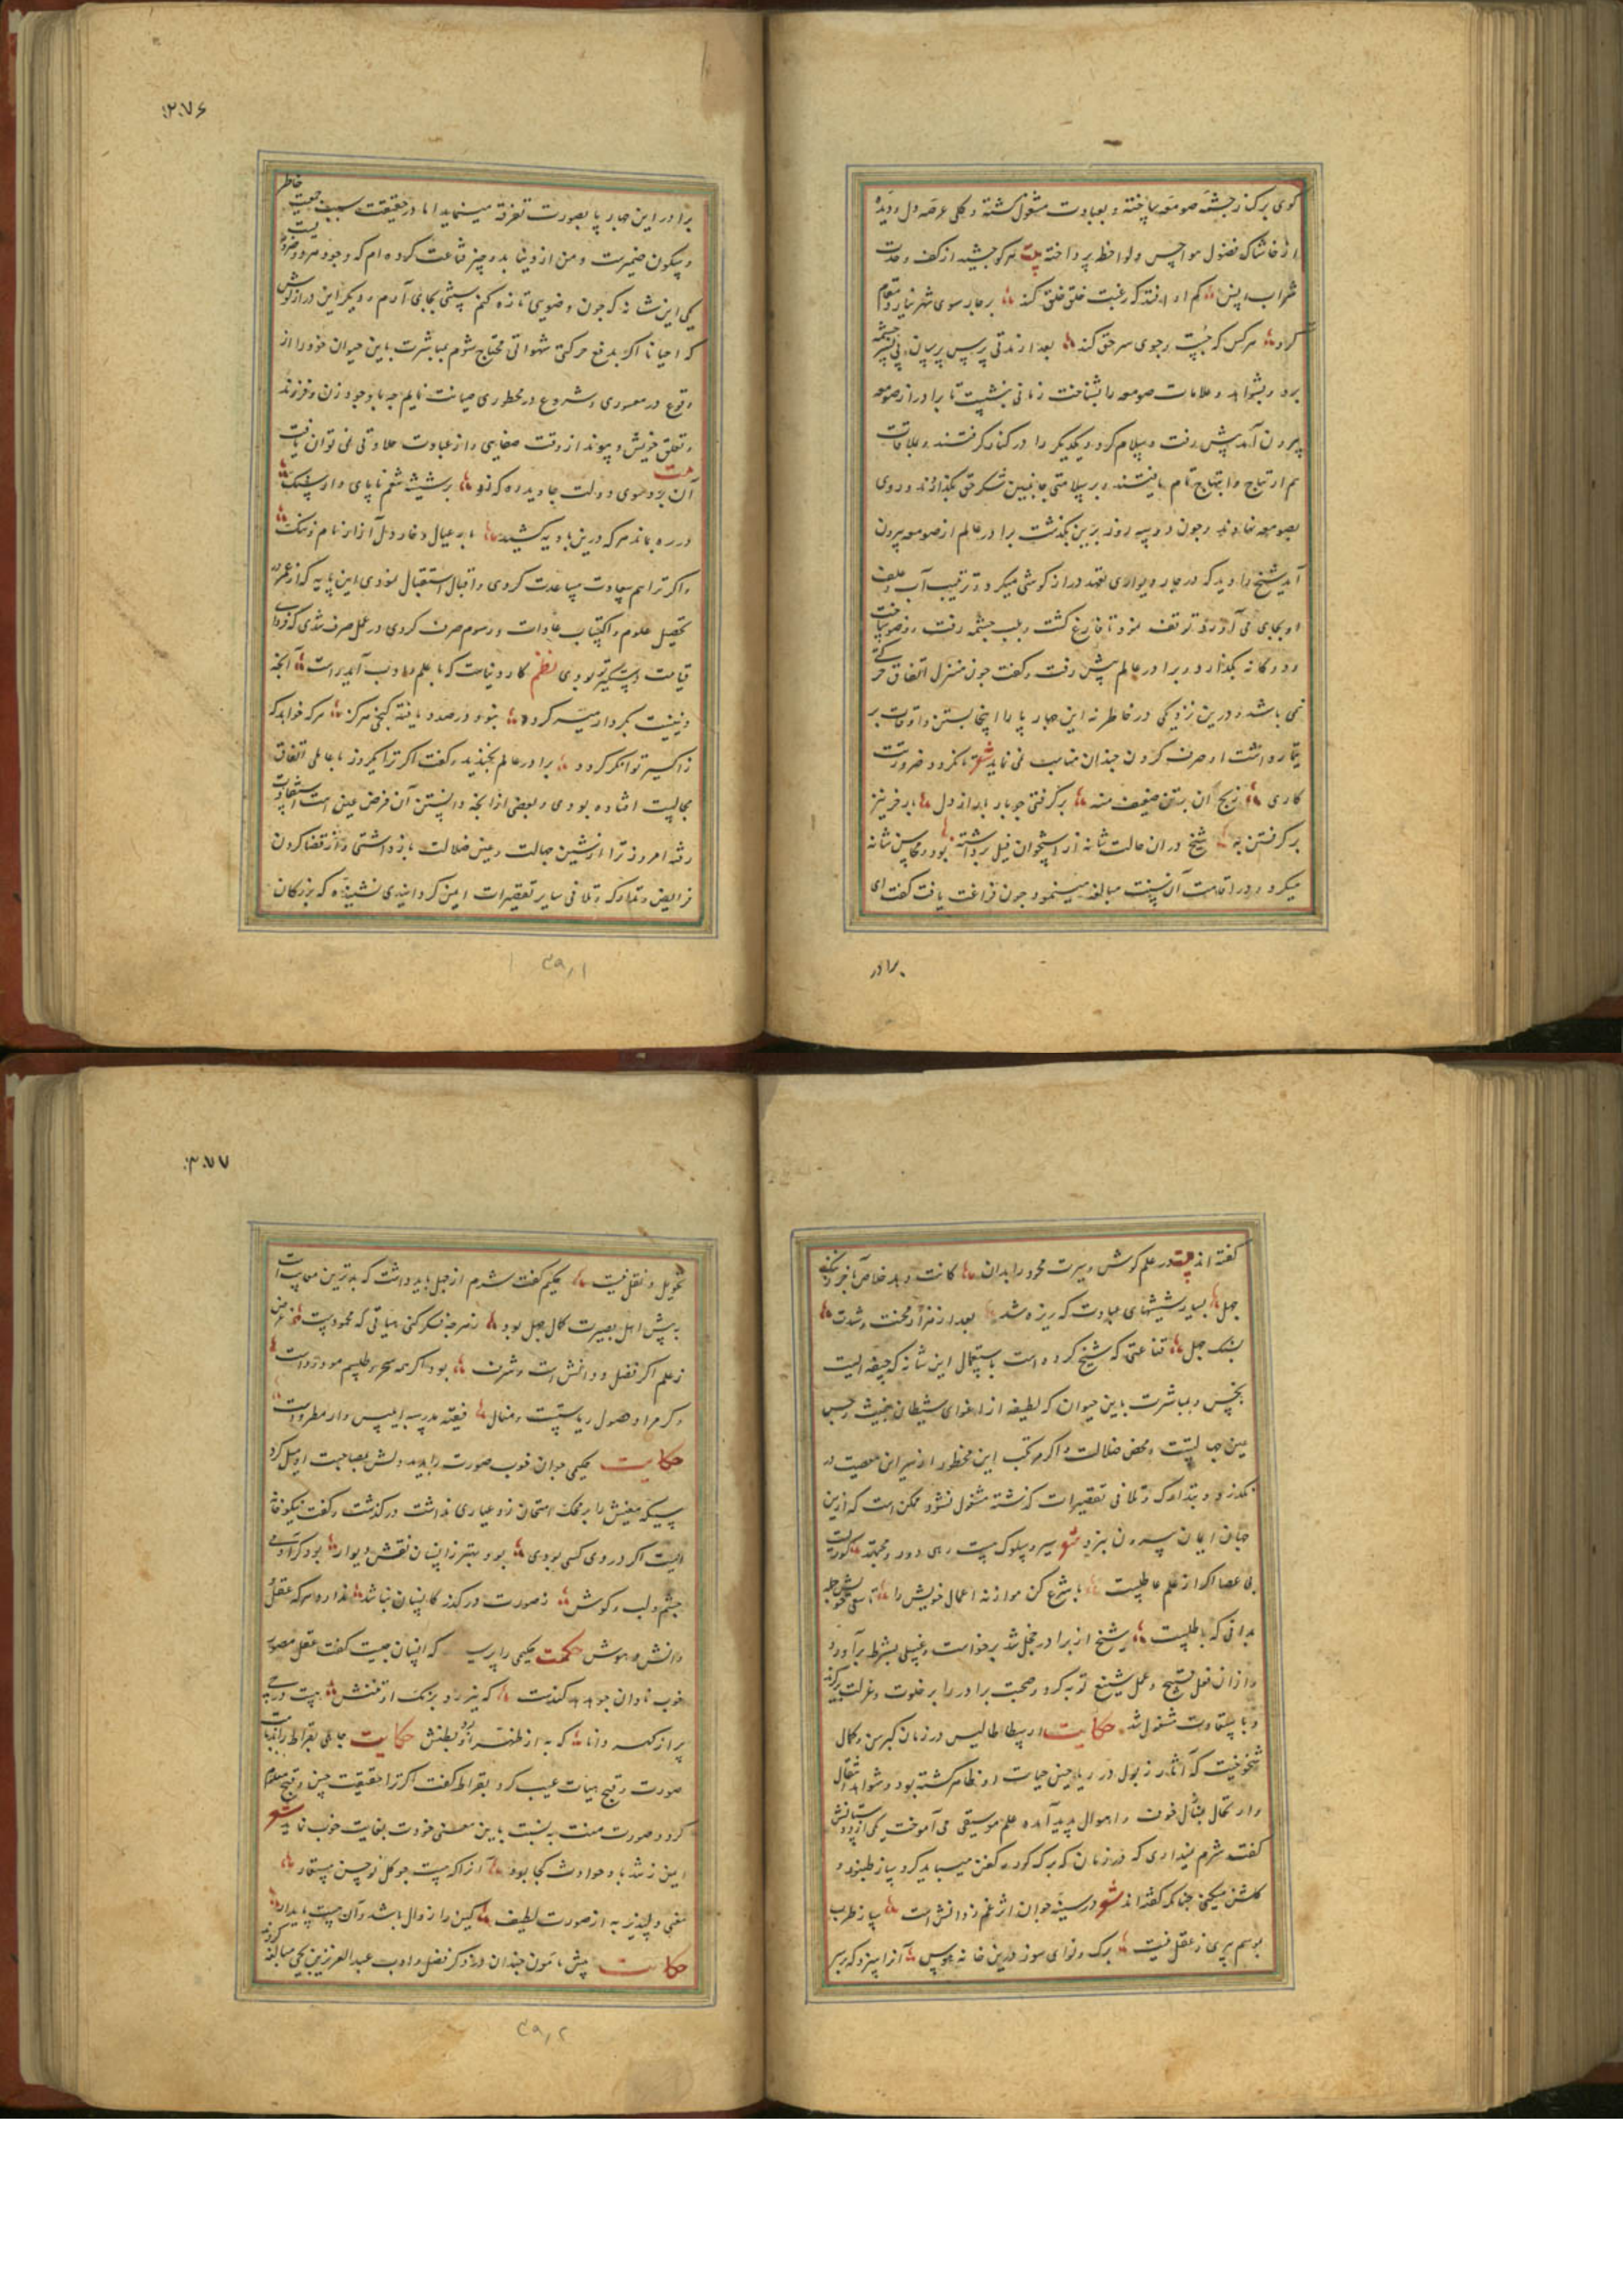 کوی برکنار چشمه صومعه ساخته و بعبادت مشغول گشته و کلی عرصه دل و دیده
از خاشاک فضول هواجس و لواحظ پرداخته بیت هر کو چشید از کف وحدت
شراب انس کم اوفتد که رغبت خلق خلق کند بر چار سوی شهر نیارد مقام
کرد هر کس که جست رجوی سر حق کند بعد از مدتی پرس پرسان پی بسر چشمه
برد و بشواهد و علامات صومعه را بشناخت زمانی بنشست تا برادر از صومعه
بیرون آمد پیش رفت و سلام کرد و یکدیگر را در کنار گرفتند و بملاقات
هم ارتیاح و ابتهاج تمام یافتند و بر سلامتی جانبین شکر حق بگذاردند و روی
بصومعه نهادند و چون دو سه روز برین بگذشت برادر عالم از صومعه بیرون
آمد شیخ را دید که در چاردیواری تعهد دراز گوشی میکرد و ترتیب آب و علف
او بجای می آورد توقف نمود تا فارغ گشت و بلب چشمه رفت وضو ساخت
و دوگانه بگذارد و برادر عالم پیش رفت و گفت چون منزل اتفاق حرکتی
نمی باشد درین نزدیکی در خاطر نه این چارپا را اینجا بستن و اوقات بر
تیمار داشت او صرف کردن چندان مناسب نمی نماید شعر تا نکردد ضرورت
کاری رنج آن بر تن ضعیف منه بر گرفتی چو بار باید از دل بار خر نیز
بر گرفتن به شیخ دران حالت شانه از استخوان فیل برداشته بود و محاسن شانه
میکرد و در اقامت آن سنت مبالغه مینمود چون فراغت یافت گفت ای
برادر
۲۷۶
برادر این چارپا بصورت تفرقه مینماید اما در حقیقت سبب جمعیت خاطر
و سکون ضمیرست و من از دنیا بدو چیز قناعت کرده ام که وجود هر دو ضروریست
یکی این شانه که چون وضویی تازه کنم سنتی بجای آرم و دیگر این دراز گوش
که احیانا اگر بدفع حرکتی شهوانی محتاج شوم بمباشرت باین حیوان خود را از
وقوع در معسوری و شروع در محظوری صیانت نمایم چه با وجود زن و فرزند
و تعلق خویش و پیوند از وقت صفایی و از عبادت حلاوتی نمی توان یافت
آن بر سوی دولت جاوید ره که زد بر شیشه شغم تا پای دار سنگ
در ره بماند هر که درین بادیه کشید بار عیال و خار دل آزار نام و ننگ
و اگر ترا هم سعادت مساعدت کردی و اقبال استقبال نمودی این پایه که از عمر در
تحصیل علوم و اکتساب عادات و رسوم صرف کردی در عمل صرف شدی که فردای
قیامت دستگیر تو بودی نظم کار دنیاست که با علم و ادب آید راست آنچه
دینیست بکردار میسر گردد بنود در صدد یافته گنجی هرگز هر که خواهد که
ز اکسیر توانگر گردد برادر عالم بخندید و گفت اگر ترا یکروز با عاملی اتفاق
مجالست افتاده بودی و بعضی از آنچه دانستن آن فرض عین است استفادت
رفته امروز ترا از شین جهالت و عین ضلالت باز داشتی و از قضا کردن
فرایض و تدارک و تلافی سایر تقصیرات ایمن گردانیدی نشنیده که بزرگان
۲۹٫۱
گفته اند بیت در علم کوش و سیرت محمود را بدان کانست و بد خلاص
جهل بسیار شیشهای عبادت که ریزه شد بعد از هزار محنت و شدت
بسنگ جهل قناعتی که شیخ کرده است باستعمال این شانه که جیفه ایست
نجس و بمباشرت باین حیوان که لطیفه از اغوای شیطان خبیث رجس
عین جهالتست و محض ضلالت و اگر مرتکب این محظور از سر این معصیت در
نگذرد و بتدارک و تلافی تقصیرات گذشته مشغول نشود ممکن است که ازین
جهان ایمان بیرون نبرد شعر سیر و سلوک نیست رهی دور و مجتهد کوریست
بی عصا اگر از علم عاطلست با شرع کن موازنه اعمال خویش را تا سعی خویش جمله
بدانی که باطلست شیخ از برادر خجل شد برخواست و غسلی بشرط بر آورد
و از آن فعل قبیح و عمل شنیع توبه کرد و صحبت برادر را بر خلوت و عزلت برگزید
و باستفادت مشغول شد حکایت ارسطاطالیس در زمان کبر سن و کمال
شیخوخیت که آثار زبول در ریاحین حیات او ظاهر گشته بود و شواهد انتقال
و ارتحال بتأمل خون و احوال پدید آمده علم موسیقی می آموخت یکی از دوستانش
گفت شرم نمیداری که در زمان که برگ گور و کفن میباید کرد بساز طنبور و
گلشن میکنی چنانکه گفته اند شعر در سینه جوان اثر غم ز دانش است ساز طرب
بوسم پیری ز عقل نیست برگ و نوای سوز درین خانه هوس آنرا سزد که بر سر
۳۷۷
تحویل و نقل نیست حکیم گفت شرم از جهل باید داشت که بدترین معایب است
به پیش اهل بصیرت کمال جهل بود ز هر چه فکر کنی هیأتی که محمودست غرض
ز علم اگر فضل و دانش است و شرف بود اگر همه سحر و طلسم مودودست
و گر مراد حصول ریاستست و منال فقیه مدرسه ابلیس وار مطرودست
حکایت حکیمی جوان خوب صورت را بدید دلش بمصاحبت او میل کرد
سکه معنیش را بر محک امتحان زد و عیاری نداشت درگذشت و گفت نیکو خانه
ایست اگر در وی کسی بودی بود بهتر ز انسان نقش دیوار بود گر آدمی
چشم و لب و گوش ز صورت درگذر کانسان نباشد ندارد هر که عقل و
دانش و هوش حکمت حکیمی را پرسید که انسان چیست گفت عقل مصور
خوب نادان چو کندست که نیرزد بزنگ از تنش بیت در همی
پر از گهر دانا که به از ظهر بود بطنش حکایت جاهلی بقراط را بدمامت
صورت و قبح هیأت عیب کرد بقراط گفت اگر ترا حقیقت حسن و قبح معلوم
گردد صورت منت به نسبت با این معنی خودت بغایت خوب نماید شعر
ایمن ز تندباد حوادث کجا بود آنرا که نیست چو گل نو حسن مستعار
معنی دلپذیر به از صورت لطیف کین را زوال باشد و آن حسن پایدار
حکایت پیش مأمون چندان در ذکر فضل و ادب عبدالعزیز بن یحیی مبالغه کردند
۲۹٫۲